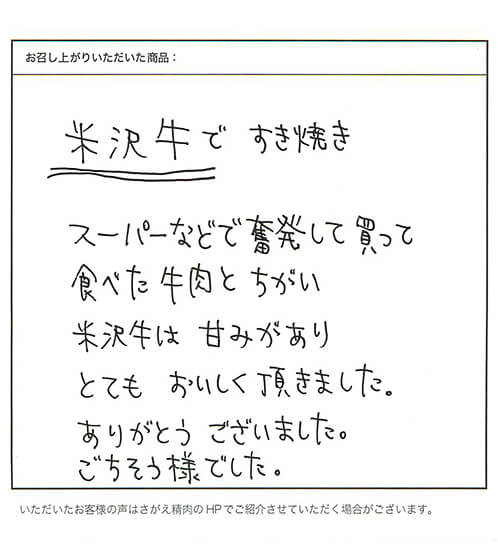 お召し上がりいただいた商品：
米沢牛で すき焼き
スーパーなどで奮発して買って
食べた牛肉とちがい
米沢牛は 甘みがあり
とても おいしく頂きました。
ありがとう ございました。
ごちそう様でした。
いただいたお客様の声はさがえ精肉のHPでご紹介させていただく場合がございます。